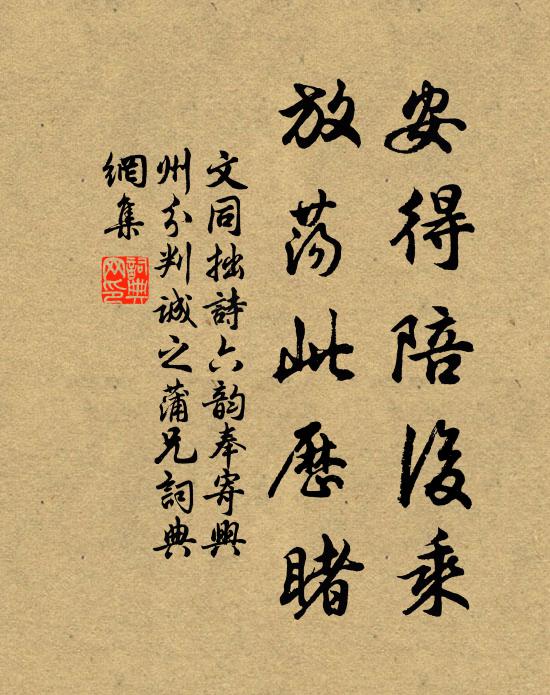 安得陪後乘
放蕩此歷睹
文同拙詩六韵奉寄興
州分判誠之蒲兄詞典
網集
詞典網印